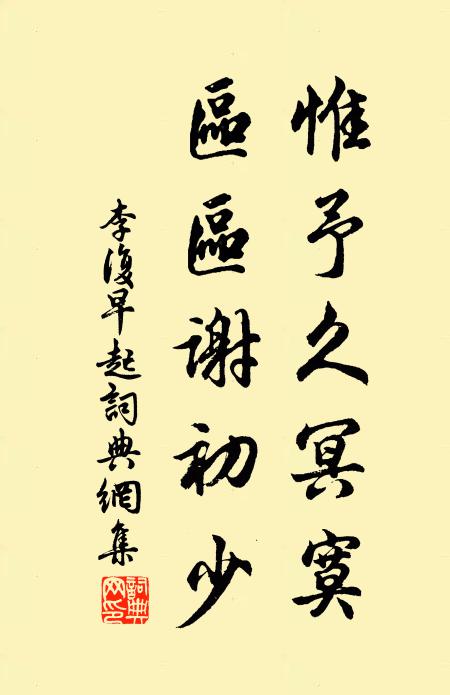 惟予久冥寞
區區謝初少
李復早起詞典網集
詞典网印